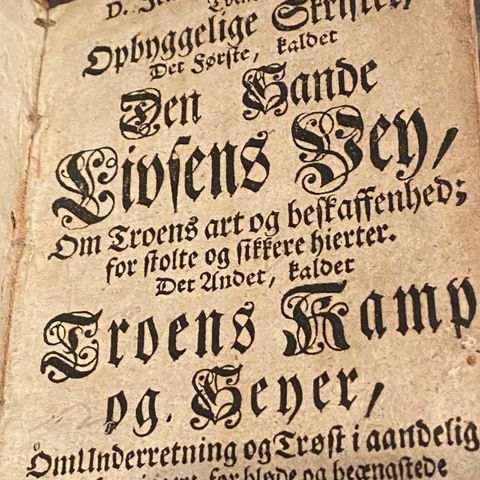 Opbyggelige Skrifter,
Det Første, kaldet
Den Sande
Livsens Vey,
Om Troens art og beskaffenhed;
for stolte og sikkere hierter.
Det Andet, kaldet
Troens Kamp
og Seyer,
Om Underretning og Trøst i aandelig
for bløde og beængstede